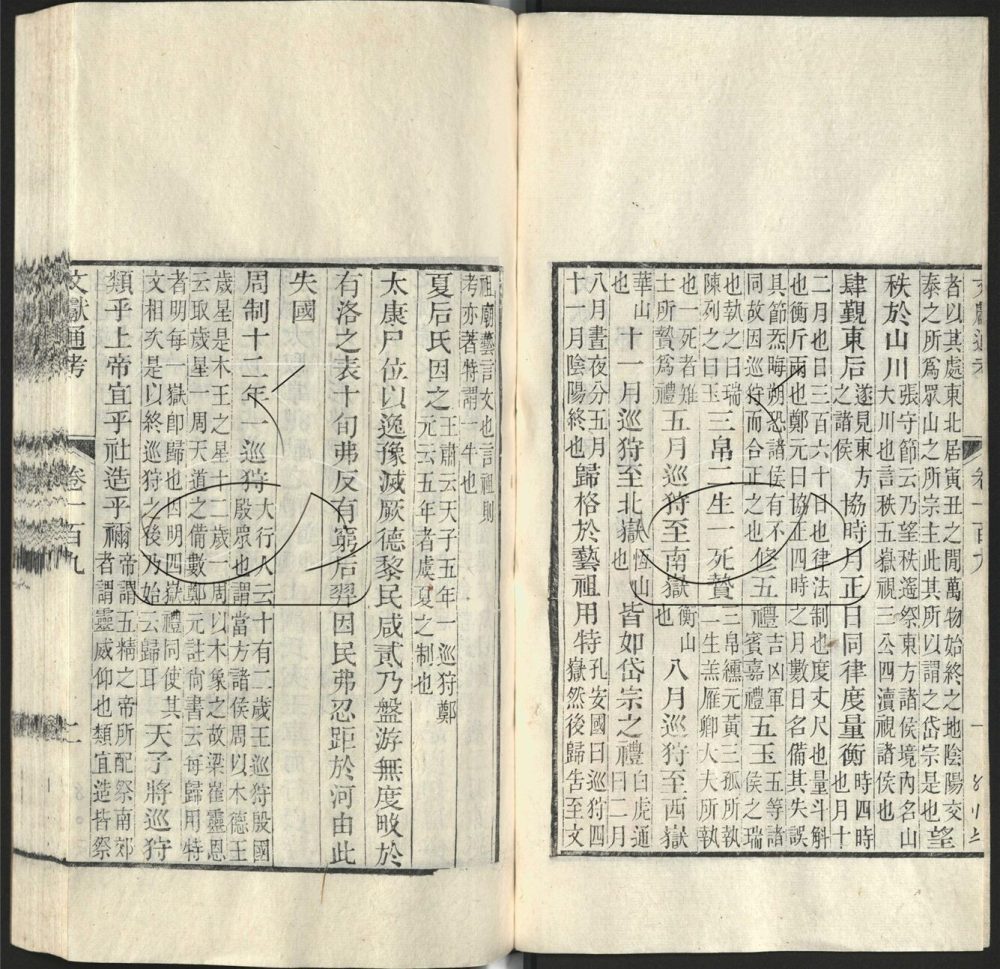 者以其處東北居寅丑之閒萬物始終之地陰陽交
泰之所爲眾山之所宗主此其所以謂之岱宗是也望
秩於山川張守節云乃望秩遙祭東方諸侯境內名山
大川也言秩五嶽視三公四瀆視諸侯也
肆覲東后遂見東方
之諸侯協時月正日同律度量衡時四時
也月十
二月也日三百六十日也律法制也度丈尺也量斗斛
也衡斤兩也鄭元曰協正四時之月數日名備其失誤
具節氣晦朔恐諸侯有不
同故因巡狩而合正之也修五禮吉凶軍
賓嘉禮五玉五等諸
侯之瑞
也執之曰瑞
陳列之曰玉三帛二生一死贄三帛纁元黃三孤所執
二生羔雁卿大夫所執
也一死者雉
士所贄爲禮五月巡狩至南嶽衡山
也八月巡狩至西嶽
華山
也十一月巡狩至北嶽恆山
也皆如岱宗之禮白虎通
曰二月
八月晝夜分五月
十一月陰陽終也歸格於藝祖用特孔安國曰巡狩四
嶽然後歸告至文
文獻通考 卷一百九
祖廟藝言文也言祖則
考亦著特謂一牛也
夏后氏因之王肅云天子五年一巡狩鄭
元云五年者虞夏之制也
太康尸位以逸豫滅厥德黎民咸貳乃盤游無度畋於
有洛之表十旬弗反有窮后羿因民弗忍距於河由此
失國
周制十二年一巡狩大行人云十有二歲王巡狩殷國
殷眾也謂當方諸侯周以木德王
歲星是木王之星十二歲一周以木象之故梁崔靈恩
云取歲星一周天道之備數鄭元註尙書云每歸用特
者明每一嶽卽歸也因明四嶽禮同使其
文相次是以終巡狩之後乃始云歸耳天子將巡狩
類乎上帝宜乎社造乎禰帝謂五精之帝所配祭南郊
者謂靈威仰也類宜造皆祭
文獻通考 卷一百九